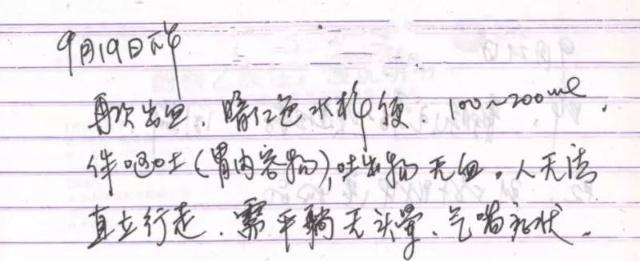 9月19日下午
再次出血，暗红色水样便，100~200ml，
伴呕吐(胃内容物)，吐出物无血，人无法
直立行走，需平躺无头晕、气喘症状。